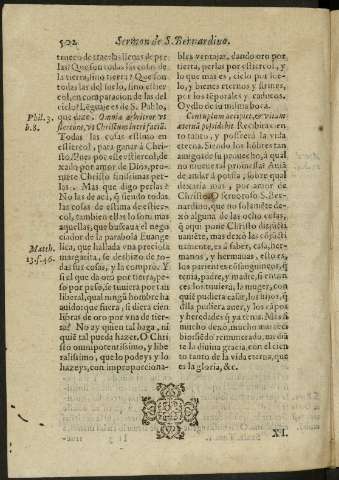 502 Sermon de S. Bernardino.
trueco de traerlas llenas de perlas? Que son todas las cosas de
la tierra, sino tierra? Que son
todas las del suelo, sino estiercol, en comparacion de las del
cielo? Lēguaje es de S. Pablo,
que dize. Omnia arbitror vt
stercora, vt Christum lucrifaciā.
Todas las cosas estimo en
estiercol, para ganar à Christo. Pues por este estiercol, dexado por amor de Dios, promete Christo finissimas perlas. Mas que digo perlas?
No las de acà, q̃ siendo todas
las cosas de estima de estiercol, tambien ellas lo son: mas
aquellas, que buscaua el negociador de la parabola Euangelica, que hallada vna preciosa
margarita, se deshizo de todas sus cosas, y la comprò. Y
si al que da oro por tierra, peso por peso, se tuuiera por tan
liberal, qual ningū hombre ha
auido: que fuera, si diera cien
libras de oro por vna de tierra? No ay quien tal haga, ni
quiē tal pueda hazer. O Christo omnipotentissimo, y liberalissimo, que lo podeys y lo
hazeys, con improporciona-
Phil. 3.
b. 8.
Matth.
13. f. 46.
bles ventajas, dando oro por
tierra, perlas por estiercol, y
lo que mas es, cielo por suelo, y bienes eternos y firmes,
por los tēporales y caducos.
Oydlo de su misma boca.
Centuplum accipiet, & vitam
æternā possidebit. Recibirà ciento tanto, y posseerà la vida
eterna. Siendo los hōbres tan
amigos de su prouecho, à qual
no mueue tal promessa? Auiā
de andar à porfia, sobre qual
dexaria mas, por amor de
Christo. O sermoso S. Bernardino, que no solamēte dexò alguna de las ocho cosas,
q̃ aqui pone Christo disjunctiuamēte, mas dexò las copulatiuamente, es à saber, casa, hermanos, y hermanas, esto es,
los parientes cōsanguineos, q̃
tenia, padre, y madre, si en aquel
los tuuiera, la muger, con
quiē pudiera casar, los hijos, q̃
dlla pudiera auer, y los cāpos
y heredades q̃ ya tenia. Mas si
mucho dexò, mucho mas recibio, siēdo remunerado, mediāte la diuina gracia, con el ciento tanto de la vida eterna, que
es la gloria, &c.
XI.